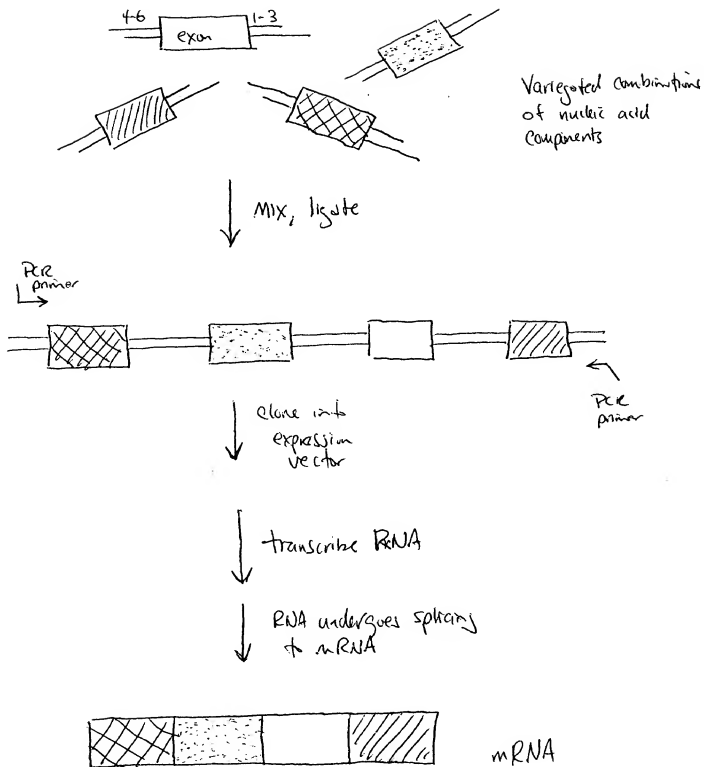 4-6
1-3
exon
Variegated combinations
of nucleic acid
components
Mix, ligate
PCR
primer
PCR
primer
Clone into
expression
vector
transcribe RNA
RNA undergoes splicing
to mRNA
mRNA